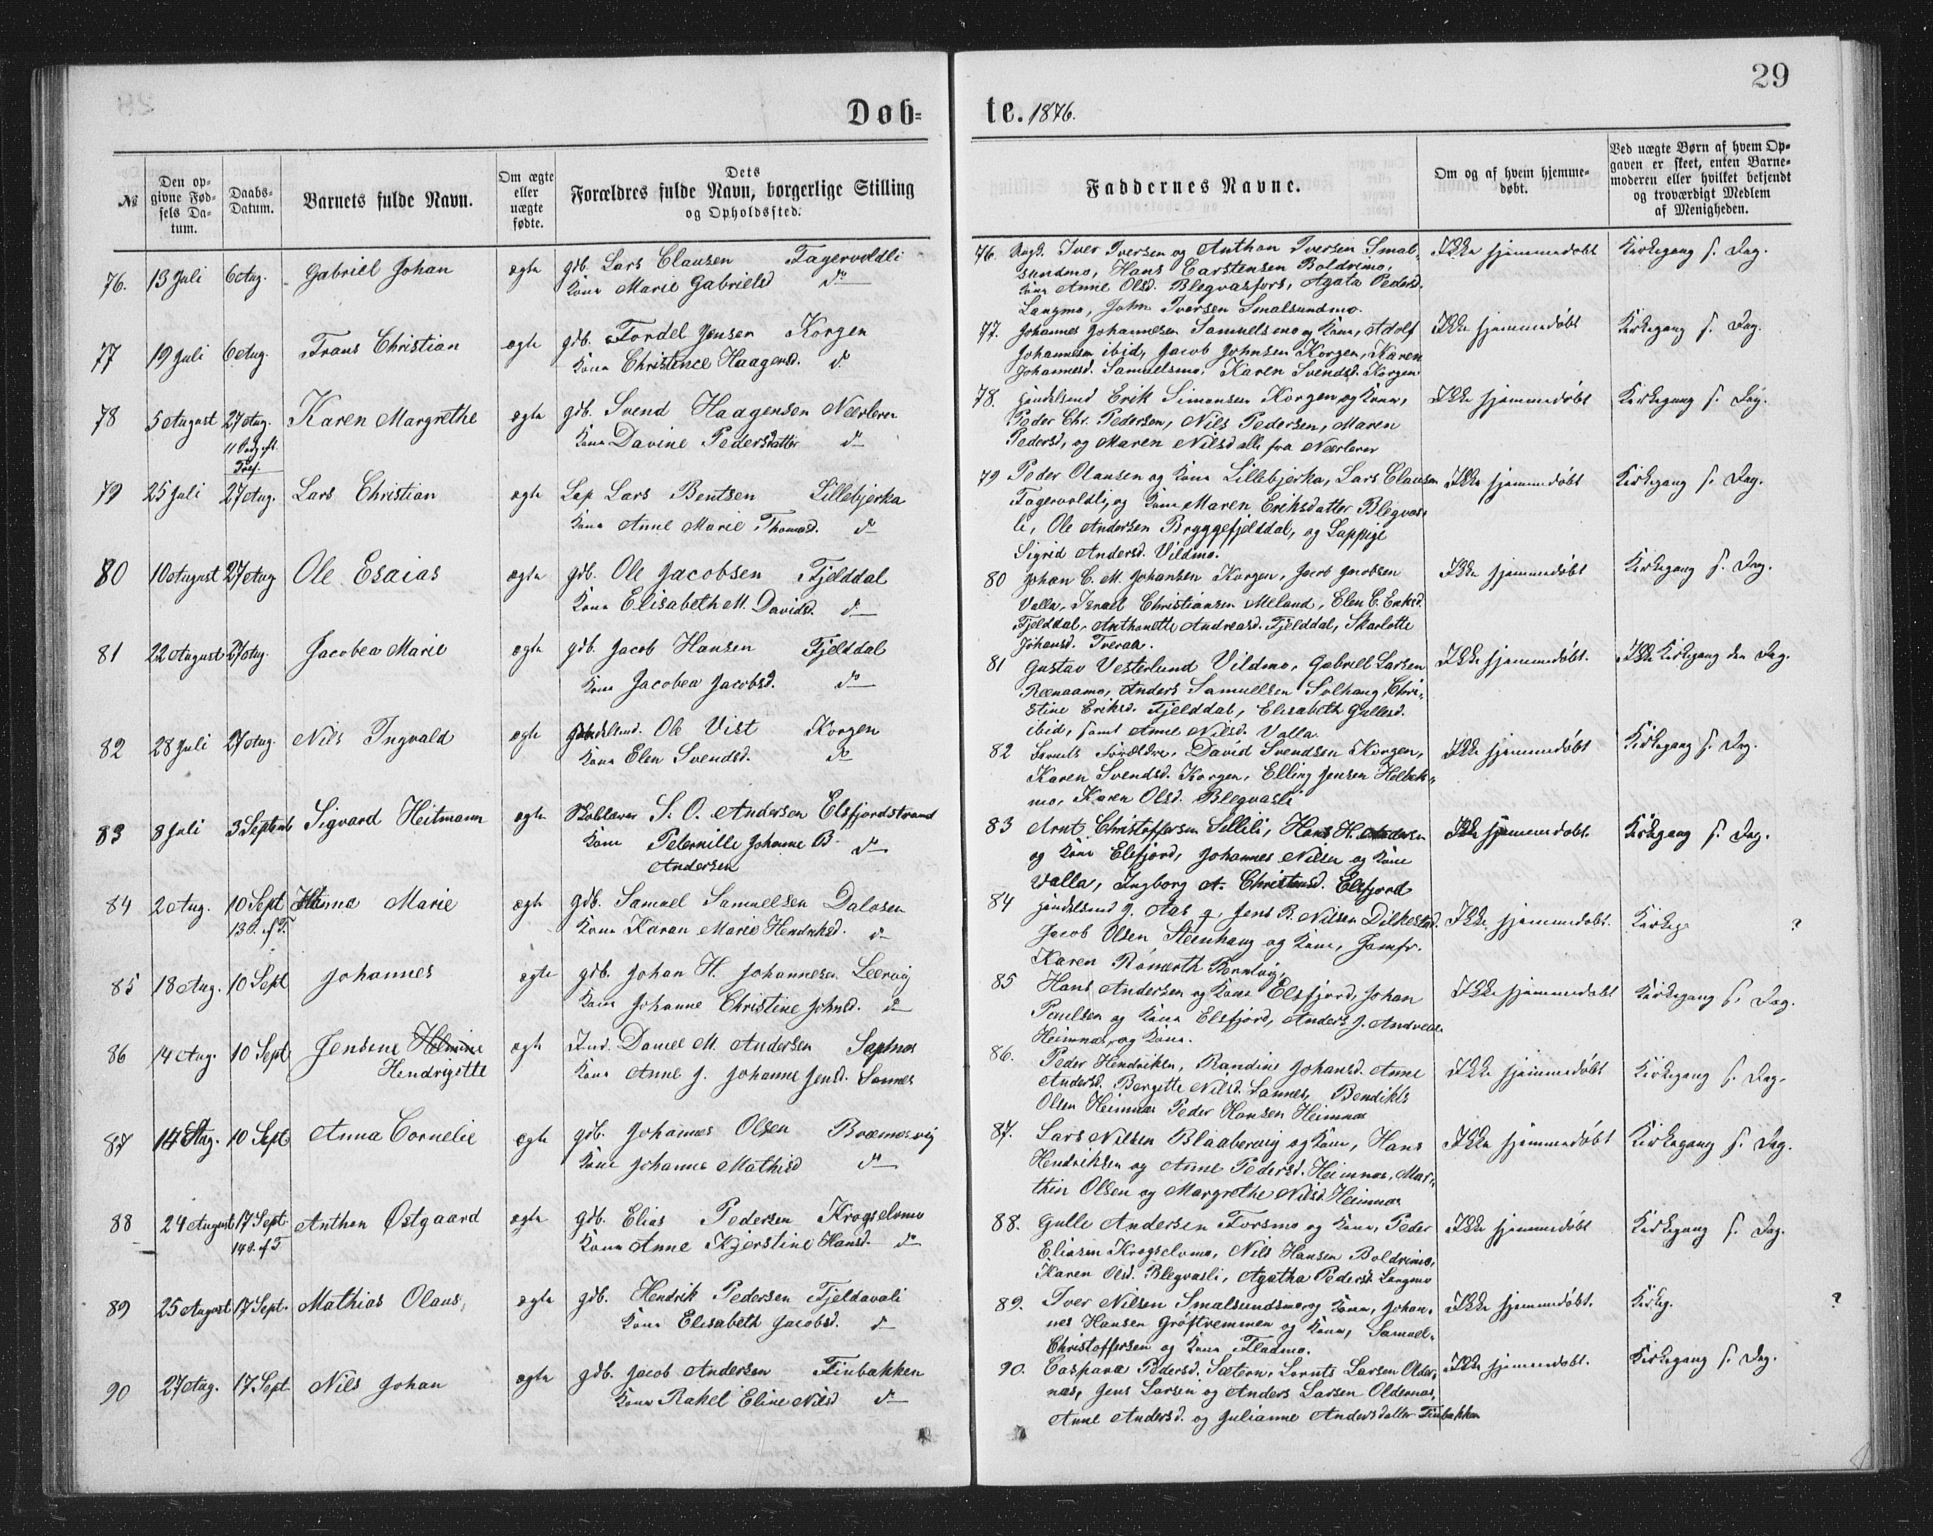 29
Døb=
te. 1876.
№
Den op-
givne Fød-
sels Da-
tum.
Daabs-
Datum.
Barnets fulde Navn.
Om ægte
eller
uægte
fødte.
Dets
Forældres fulde Navn, borgerlige Stilling
og Opholdssted.
Faddernes Navne.
Om og af hvem hjemme-
døbt.
Ved uægte Børn af hvem Op-
gaven er skeet, enten Barne-
moderen eller hvilket bekjendt
og troværdigt Medlem
af Menigheden.
76. 13 Juli 6 Aug. Gabriel Johan ægte gdb. Lars Clausen Fagervoldli
Kone Marie Gabrielsd do
77 19 Juli 6 Aug. Frans Christian ægte gdb. Fordel Jensen Korgen
Kone Christence Haagensd. do
78 5 August 27 Aug. Karen Margrethe ægte gdb. Svend Haagensen Nærleren
11 Søndag e. ft.
Tref.
Kone Davine Pedersdatter do
79 25 Juli 27 Aug. Lars Christian ægte Lap Lars Bentsen Lillebjerka
Kone Anne Marie Thomasd. do
80 10 August 27 Aug Ole Esaias ægte gdb. Ole Jacobsen Fjelddal
Kone Elisabeth M. Davidsd. do
81 22 August 27 Aug. Jacobea Marie ægte gdb. Jacob Hansen Fjelddal
Kone Jacobea Jacobsd. do
82 28 Juli 27 Aug. Nils Ingvald ægte Handelsmd. Ole Vist Korgen
Kone Elen Svendsd. do
83 8 Juli 3 Septemb Sigvard Heitmann ægte S. O. Andersen Elsfjordstrand
Kone Peternille Johanne B. do
Andersen
84 2 Aug. 10 Sept Hanna Marie ægte gdb. Samuel Samuelsen Dalosen
13 S. ef T.
Kone Karen Marie Hendriksd. do
85 18 Aug. 10 Sept Johannes ægte gdb. Johan H. Johannesen Leervig
Kone Johanne Christine Johnsd. do
86 14 Aug. 10 Sept Jensine Helmine ægte Ind. Daniel M. Andersen
Hendrgette
Kone Anne J. Johanne Jensd. Sannes
87 14 Aug. 10 Sept Anna Cornelie ægte gdb. Johannes Olsen Bræmosvig
Kone Johanne Mathisd do
88 24 August 17 Sept. Anthon Østgaard ægte gdb. Elias Pedersen Krogselvmo
14 S. ef T
Kone Anne Kjerstine Hansd. do
89 25 August 17 Sept. Mathias Olaus, ægte gdb. Hendrik Pedersen Fjeldavoli
Kone Elisabeth Jacobsd. do
90 27 Aug. 17 Sept Nils Johan ægte gdb. Jacob Andersen Finbakken
Kone Rakel Eline Nilsd do
76. Ungk. Iver Iversen og Anthon Iversen Smal- Ikke hjemmedøbt Kirkegang s. Dag.
sundmo, Hans Carstensen Boldrimo,
Kone Anne Olsd. Blegvasfors, Agata Pedersd.
Langmo, John Iversen Smalsundmo.
77. Johannes Johannesen Samuelsmo og Kone, Adolf Ikke hjemmedøbt Kirkegang s. Dag.
Johannesen ibid, Jacob Johnsen Korgen, Karen
Johannesd. Samuelsmo, Karen Svendsd. Korgen
78. Handelsmd Erik Simonsen Korgen og Kone, Ikke hjemmedøbt Kirkegang s. Dag.
Peder Chr. Pedersen, Nils Pedersen, Maren
Pedersd, og Maren Nilsd alle fra Nærleren
79 Peder Olausen og Kone Lillebjerka, Lars Clausen Ikke hjemmedøbt Kirkegang s. Dag.
Fagervoldli, og Kone Maren Eriksdatter Blegvas-
li, Ole Andersen Bryggefjelddal, og Lappige
Sigrid Andersd. Vildmo.
80 Johan C. M. Johansen Korgen, Jacob Jacobsen Ikke hjemmedøbt Kirkegang s. Dag.
Valla, Israel Christiansen Meland, Elen C. Eriksd.
Fjelddal, Anthonette Andreasd. Fjelddal, Skarlotte
Johansd. Tveraa.
81 Gustav Vesterlund Vildmo, Gabriel Larsen Ikke hjemmedøbt. Ikke Kirkegang den Dag.
Reenaamo, Anders Samuelsen Solhaug, Chri-
stine Eriksd. Fjelddal, Elisabeth Gullesd.
ibid, samt Anne Nilsd. Valla.
82 Barnets Forældre, David Svendsen Korgen, Ikke hjemmedøbt Kirkegang s. Dag.
Karen Svendsd. Korgen, Elling Jensen Holbek-
mo, Karen Olsd. Blegvasli
83 Arnt Christoffersen Sellili, Hans H. Andersen Ikke hjemmedøbt. Kirkegang s. Dag.
og Kone Elsfjord, Johannes Nilsen og Kone
Valla, Ingborg A. Christensd. Elsfjord
84 Handelsmd J. Aas g Jens R. Nilsen Dilkestad Ikke hjemmedøbt. Kirkeg. ?
Jacob Olsen Steenhaug og Kone, Jomfr.
Karen
85 Hans Andersen og Kone Elsfjord, Johan Ikke hjemmedøbt Kirkegang s. Dag.
Paulsen og Kone Elsfjord, Anders J. Andreas.
Heimnæs, og Kone.
86. Peder Hendriksen, Randine Johansd. Anne Ikke hjemmedøbt Kirkegang s. Dag.
Andersd. Bergitte Nilsd. Sannes, Bendikts
Olsen Heimnæs Peder Hansen Heimnæs
87. Lars Nilsen Blaabærvig og Kone, Hans Ikke hjemmedøbt Kirkegang s. Dag.
Hendriksen og Anne Pedersd. Heimnæs, Mar-
thin Olsen og Margrethe Nilsd Heimnæs
88. Gulle Andersen Forsmo og Kone, Peder Ikke hjemmedøbt Kirkegang s. Dag.
Eliasen Krogselvmo, Nils Hansen Boldrimo,
Karen Olsd. Blegvasli, Agatha Pedersd. Langmo
89. Iver Nilsen Smalsundsmo og Kone, Johan- Ikke hjemmedøbt. Kirkg. ?
nes Hansen Grøftremmen og Kone, Samuel
Christoffersen og Kone Fladmo.
90. Caspara Pedersd. Sætern, Lornts Larsen Older- Ikke hjemmedøbt. Kirkegang s. Dag.
næs, Jens Larsen og Anders Larsen Oldernæs,
Anne Andersd. og Julianne Andersdatter Finbakken